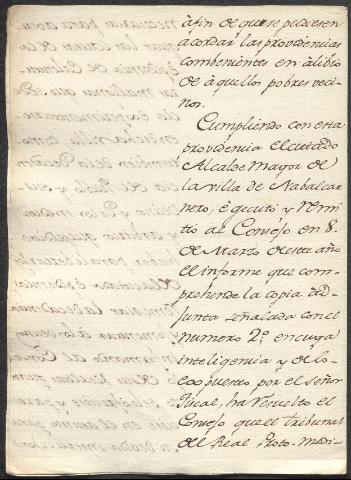 àfin de que se pudiesen
acordar las providencias
combenientes en alibio
de àquellos pobres veci-
nos.
Cumpliendo con esta
providencia el citado
Alcalde Mayor de
la villa de Nabalcar-
nero, egecutó y remi-
tió al Consejo en 8.
de Marzo de este año
el informe que com-
prehende la copia ad-
junta señalada con el
numero 2º, en cuya
inteligencia y de lo
expuesto por el señor
Fiscal, ha resuelto el
Consejo que el tribunal
del Real Proto-Medi-